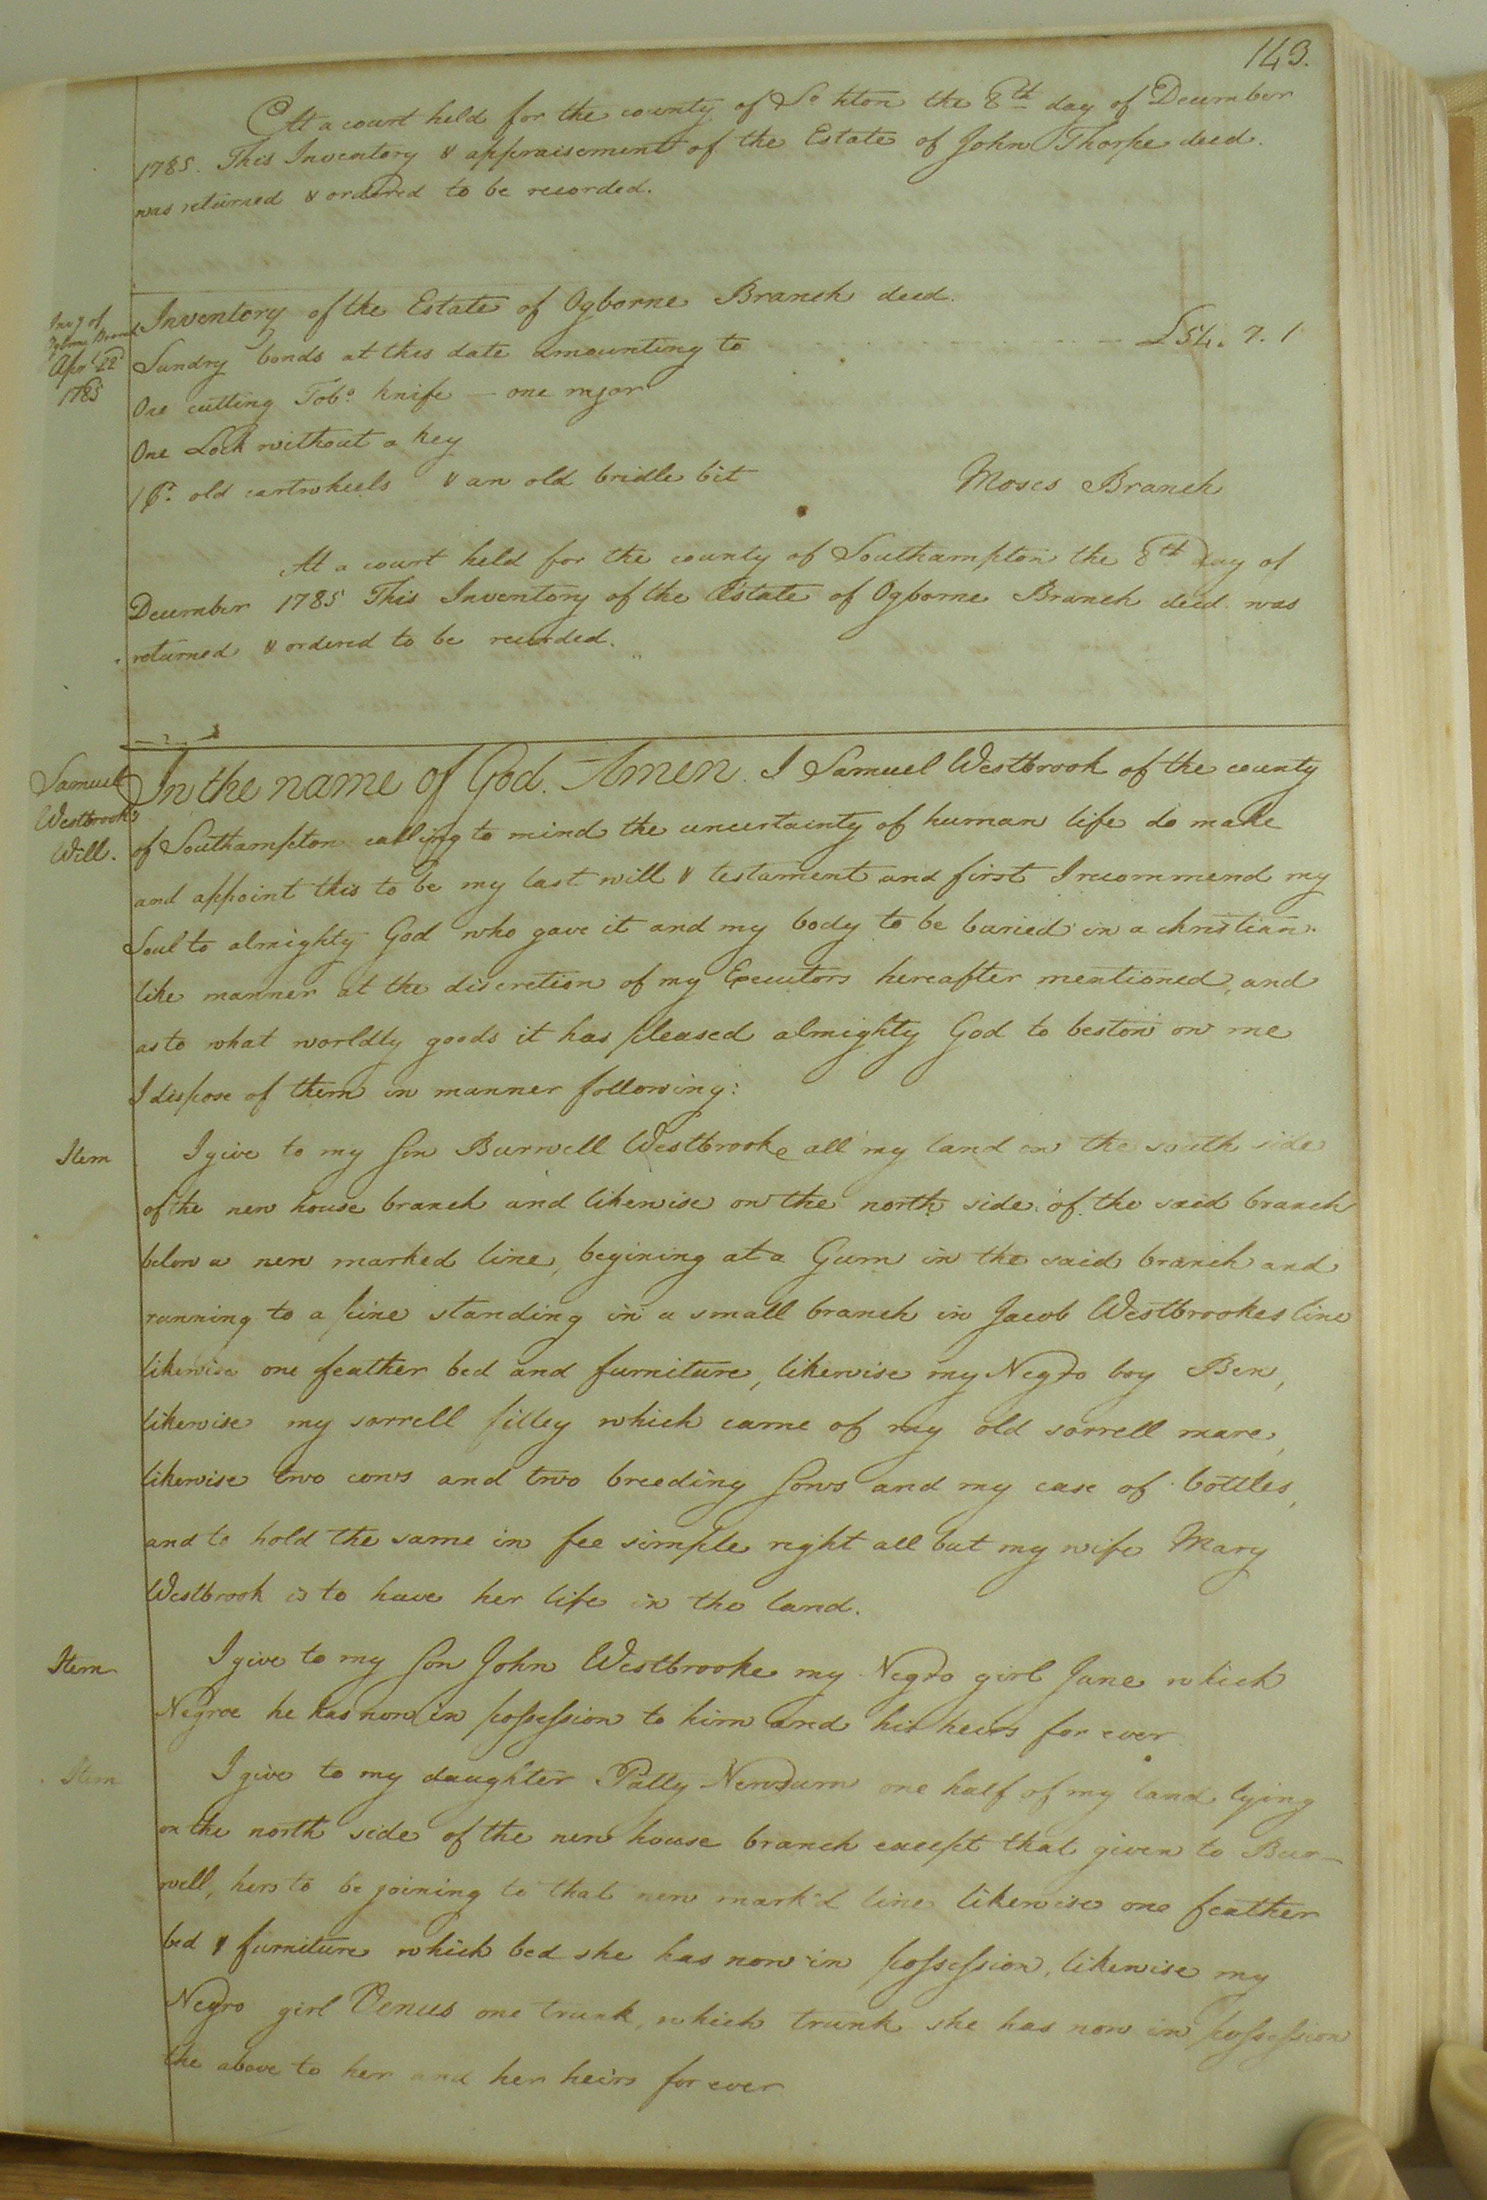 143.
At a court held for the county of So hton the 8th day of December
1785. This Inventory & appraisement of the Estate of John Thorpe decd.
was returned & ordered to be recorded.
Inv'y of
Ogborne Branch
Apr'l 22d
1785
Inventory of the Estate of Ogborne Branch decd.
Sundry bonds at this date amounting to £54. 7. 1
One cutting Tobo. knife — one razor
One Lock without a key
1 Pr. old cartwheels & an old bridle bit Moses Branch
At a court held for the county of Southampton the 8th day of
December 1785 This Inventory of the Estate of Ogborne Branch decd. was
returned & ordered to be recorded.
Samuel
Westbrook's
Will.
In the name of God. Amen. I Samuel Westbrook of the county
of Southampton calling to mind the uncertainty of human life do make
and appoint this to be my last will & testament and first I recommend my
Soul to almighty God who gave it and my body to be buried in a christian
like manner at the discretion of my Executors hereafter mentioned, and
as to what worldly goods it has pleased almighty God to bestow on me
I dispose of them in manner following:
Item I give to my Son Burwell Westbrooke all my land on the south side
of the new house branch and likewise on the north side of the said branch
below a new marked line, begining at a Gum in the said branch and
running to a pine standing in a small branch in Jacob Westbrookes line
likewise one feather bed and furniture, likewise my Negro boy Ben,
likewise my sorrell filley which came of my old sorrell mare,
likewise two cows and two breeding Sows and my case of bottles,
and to hold the same in fee simple right all but my wife Mary
Westbrook is to have her life in the land.
Item I give to my Son John Westbrooke my Negro girl Jane which
Negroe he has now in possession to him and his heirs for ever
Item I give to my daughter Patty Newsum one half of my land lying
on the north side of the new house branch except that given to Bur-
well, hers to be joining to that new mark'd line likewise one feather
bed & furniture which bed she has now in possession, likewise my
Negro girl Venus one trunk, which trunk she has now in possession
the above to her and her heirs for ever